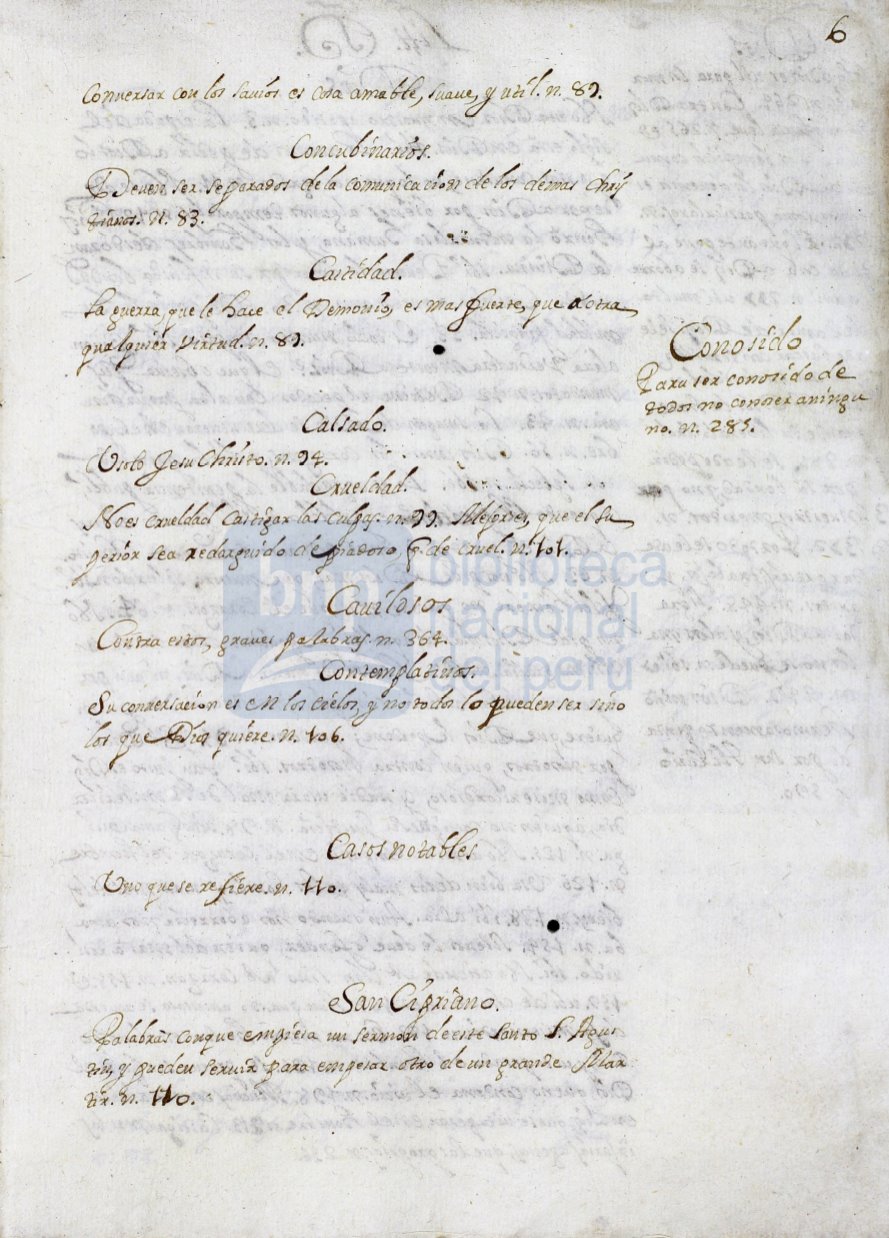 6
Conversar con los savios es cosa amable, suave, y util. n. 89.
Concubinarios.
Deven ser separados de la comunicacion de los demas Chris
tianos. n. 83.
Castidad.
La guerra, que le hace el Demonio, es mas fuerte, que a otra
qualquier virtud. n. 89.
Conosido
Para ser conosido de
todos no conoser a ningu
no. n. 285.
Calsado.
Usolo Jesu Christo. n. 94.
Crueldad.
No es crueldad castigar las culpas. n. 99. Mejor es, que el su
perior sea redarguido de piadoso, q. de cruel. n. 101.
Cavilosos
Contra estos, graves palabras. n. 364.
Contemplativos.
Su conversacion es en los cielos, y no todos lo pueden ser sino
los que Dios quiere. n. 106.
Casos notables
Uno que se refiere. n. 110.
San Cipriano.
Palabras con que empiesa un sermon de este santo S. Agus
tin, y pueden servir para empesar otro de un grande Mar
tir. n. 110.
bnp biblioteca
nacional
del perú